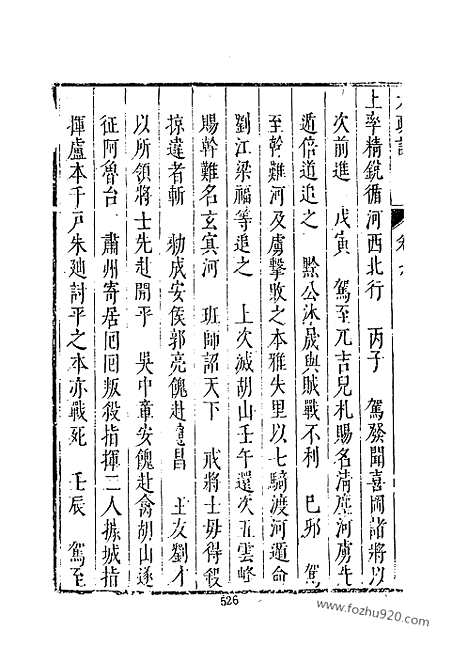 大政記
卷六
上率精銳循河西北行　丙子　駕發聞喜岡諸將以
次前進　戊寅　駕至兀吉兒札賜名清塵河虜先
遁倍道追之　黔公沐晟與賊戰不利　巳邪　駕
至斡難河及虜擊敗之本雅失里以七騎渡河遁命
劉江梁福等追之　上次滅胡山壬午還次五雲峰
賜斡難名玄冥河　班師詔天下　戒將士毋得殺
掠違者斬　勑成安侯郭亮餽赴　昌　王友劉才
以所領將士先赴開平　吳中章安餽赴禽胡山遂
征阿魯台　肅州寄居囘囘叛殺指揮二人據城指
揮盧本千戶朱廸討平之本亦戰死　壬辰　駕至
526
www.fozhu920.com